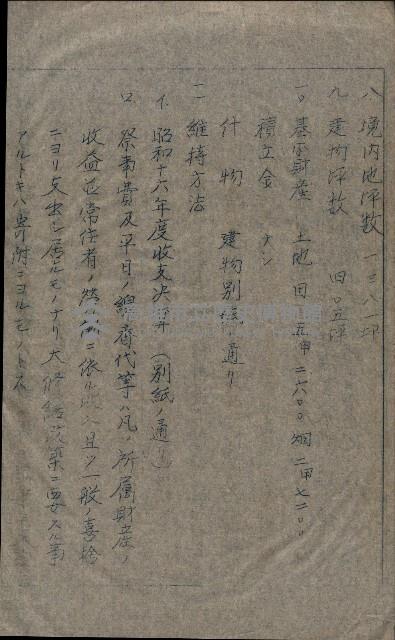 八 境内地坪数 一三八一坪
九 建物坪数 四〇五坪
一〇 基本財産 土地 田 五甲二六〇〇 畑 二甲七二〇〇
積立金 ナシ
什物 建物別紙ノ通リ
一一 維持方法
イ、昭和十六年度収支決算(別紙ノ通リ)
ロ、祭事費及平日ノ 代等ハ凡ノ所属財産ノ
収益並常住者ノ ニ依ル 且ツ一般ノ喜捨
ニヨリ支出シ居ルモノナリ 大修繕 築ニ要スル事
アルトキハ寄附ニヨルモノトス